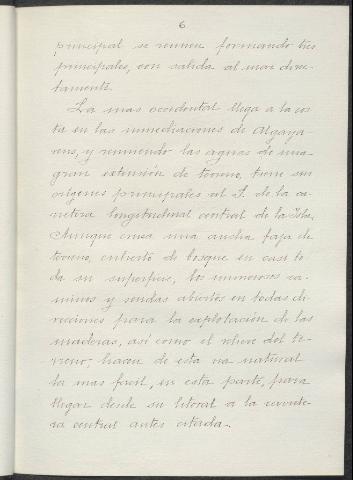 6
principal se reunen formando tres
principales, con salida al mar direc-
tamente.
La mas occidental llega a la cos
ta en las inmediaciones de Algaya-
rens, y reuniendo las aguas de una
gran extensión de terreno, tiene sus
orígenes principales al S. de la ca-
rretera longitudinal central de la Isla,
Aunque cruza una ancha faja de
terreno, cubierto de bosque en casi to
da su superficie, los numerosos ca-
minos y sendas abiertos en todas di-
recciones para la explotación de las
maderas, así como el relieve del te-
rreno, hacen de esta via natural
la mas facil, en esta parte, para
llegar desde su litoral a la carrete-
ra central antes citada.